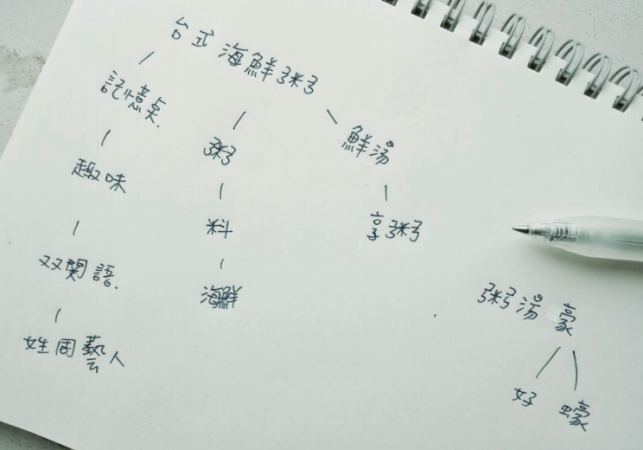 台式海鮮粥
記憶点
趣味
双関語
姓周藝人
粥
料
海鮮
鮮湯
享粥
粥湯豪
好
蠔